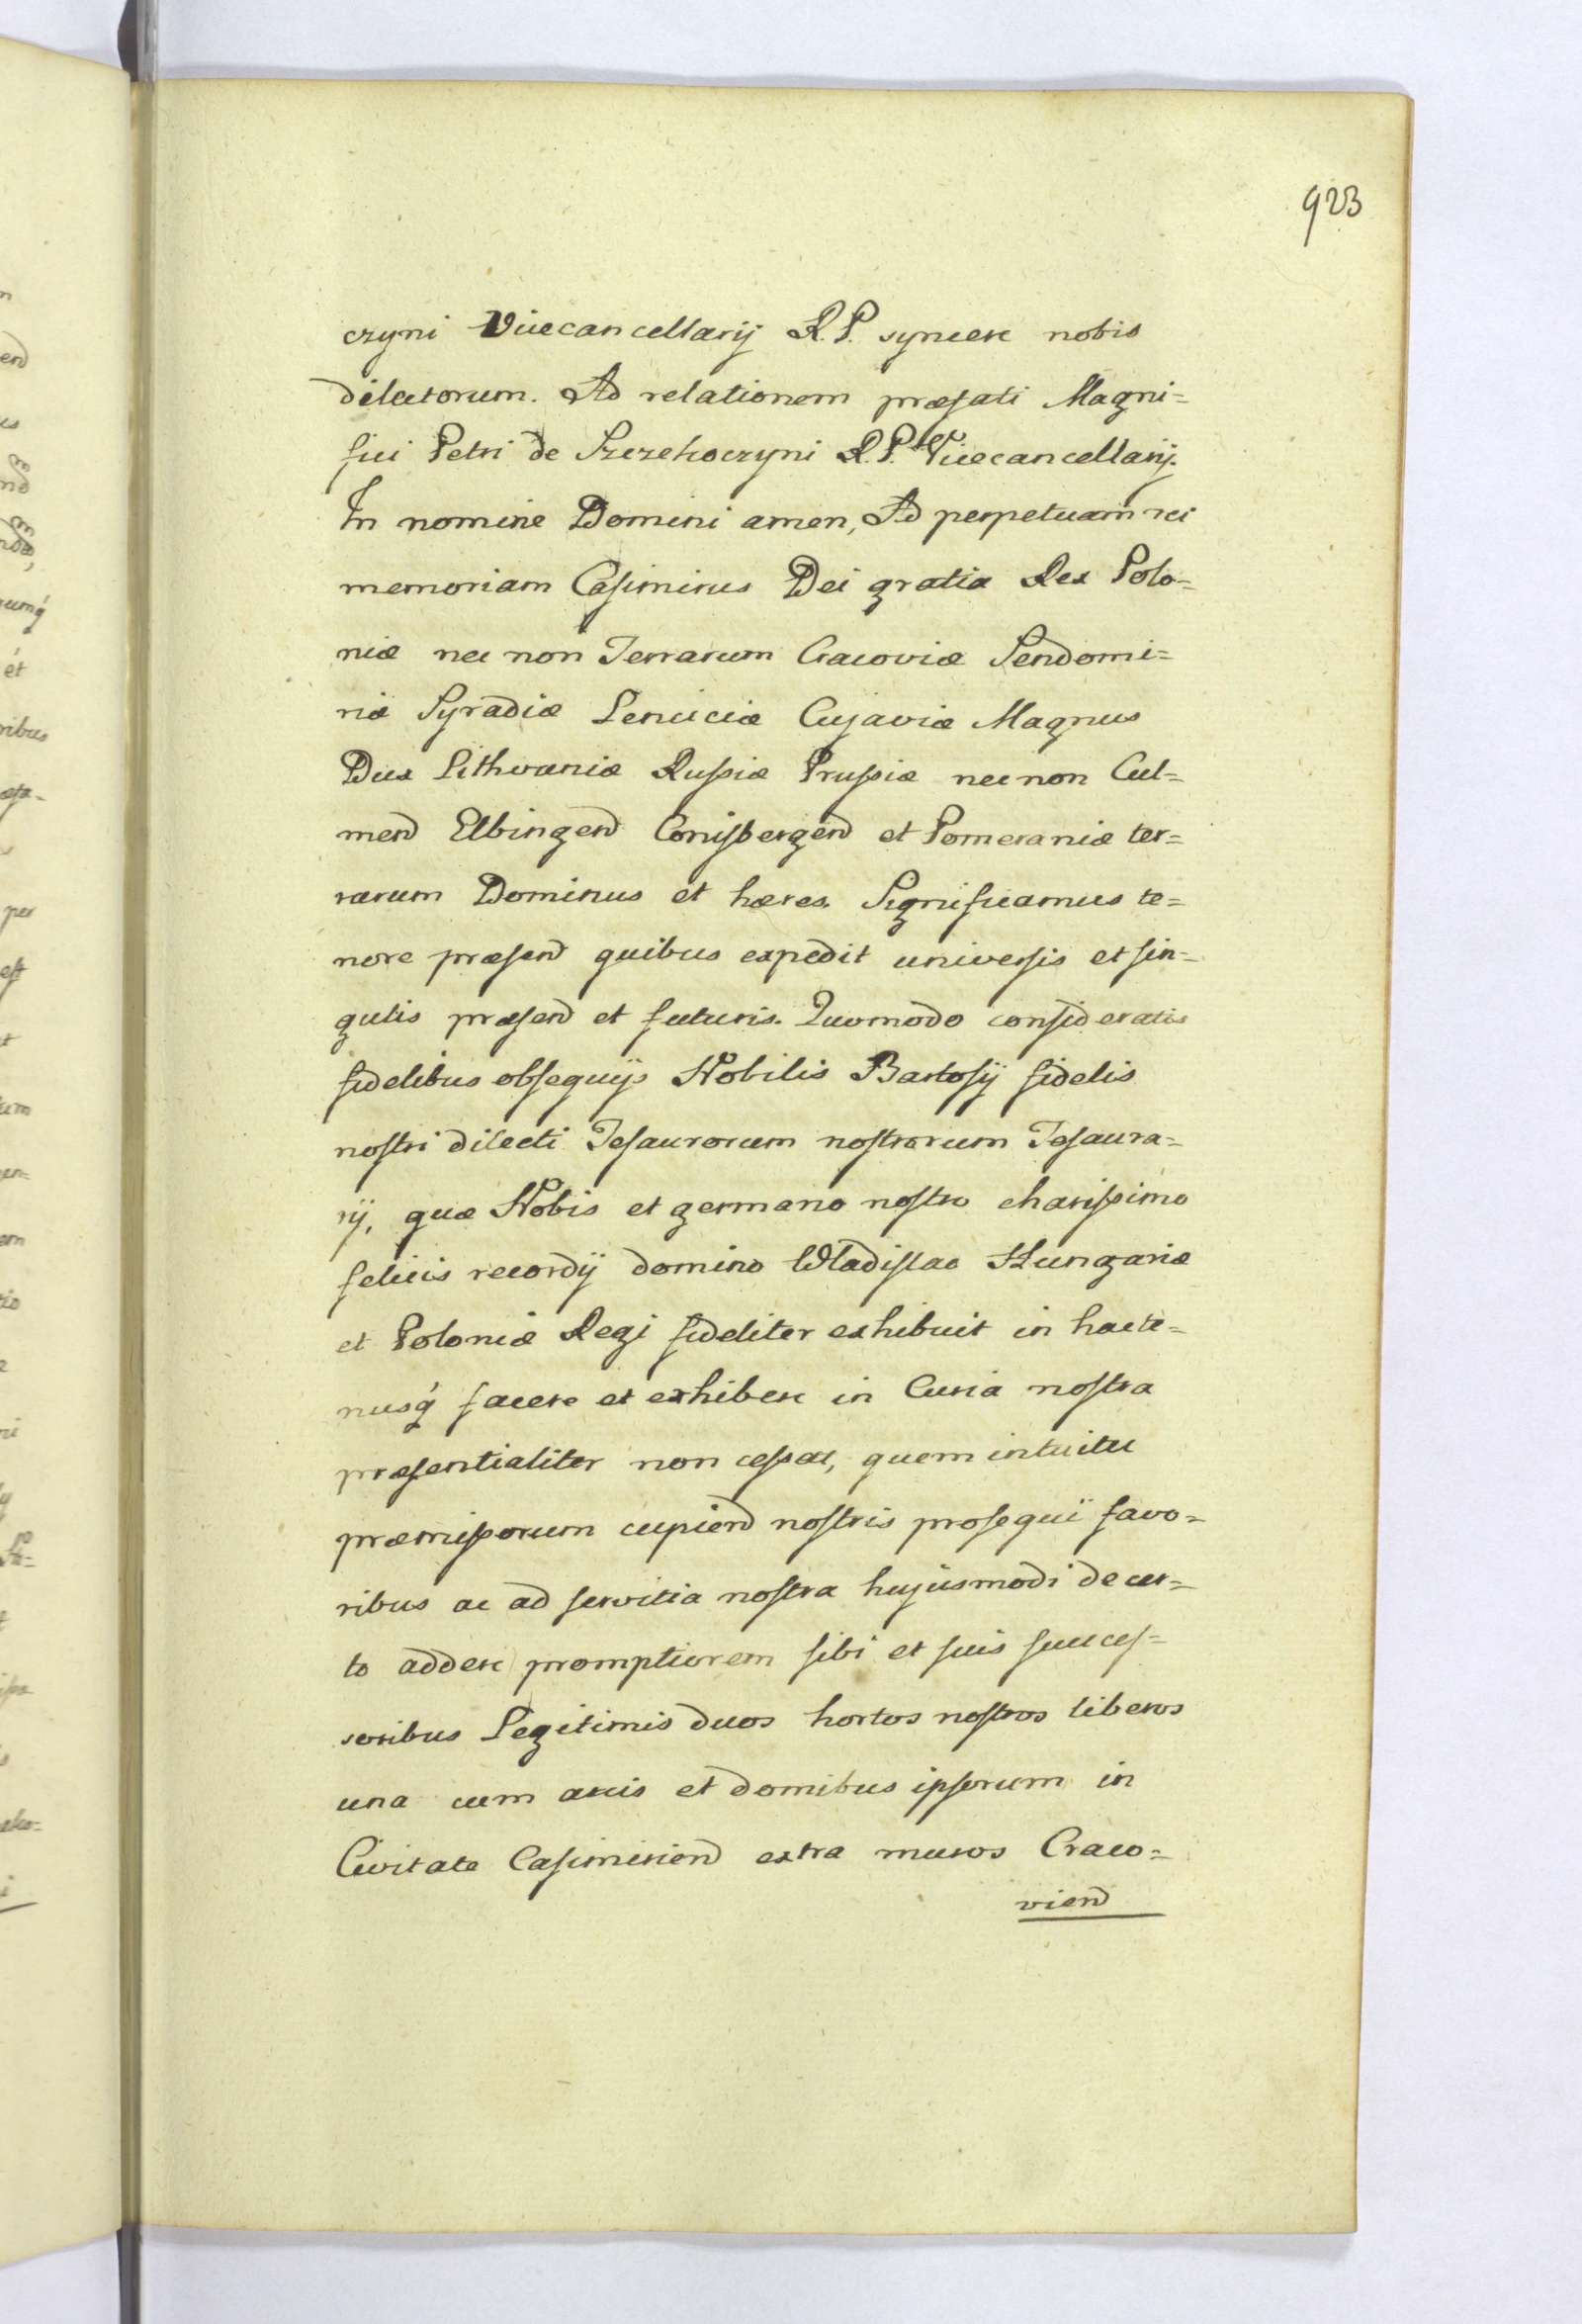 923
czyni Vicecancellarij R.P. syncere nobis
dilectorum. Ad relationem præfati Magni=
fici Petri de Szczekoczyni R.P. Vicecancellarij.
In nomine Domini amen, Ad perpetuam rei
memoriam Casimirus Dei gratia Rex Polo=
niæ nec non Terrarum Cracoviæ Sendomi=
riæ Syradiæ Lenciciæ Cujaviæ Magnus
Dux Lithvaniæ Russiæ Prussiæ nec non Cul=
mend Elbingend Conisbergend et Pomeraniæ ter=
rarum Dominus et hæres. Significamus te=
nore præsend quibus expedit universis et sin=
gulis præsend et futuris. Quomodo consideratis
fidelibus obsequijs Nobilis Bartosij fidelis
nostri dilecti Tesaurorum nostrorum Tesaura=
rij, quæ Nobis et germano nostro charissimo
felicis recordij domino Wladislao Hungariæ
et Poloniæ Regi fideliter exhibuit in hacte=
nusq́ facere et exhibere in Curia nostra
præsentialiter non cessat, quem intuitu
præmissorum cupiend nostris prosequi favo=
ribus ac ad servitia nostra hujusmodi de cer=
to addere promptiorem sibi et suis succes=
soribus Legitimis duos hortos nostros liberos
una cum areis et domibus ipsorum in
Civitate Casimiriend extra muros Craco=
viend